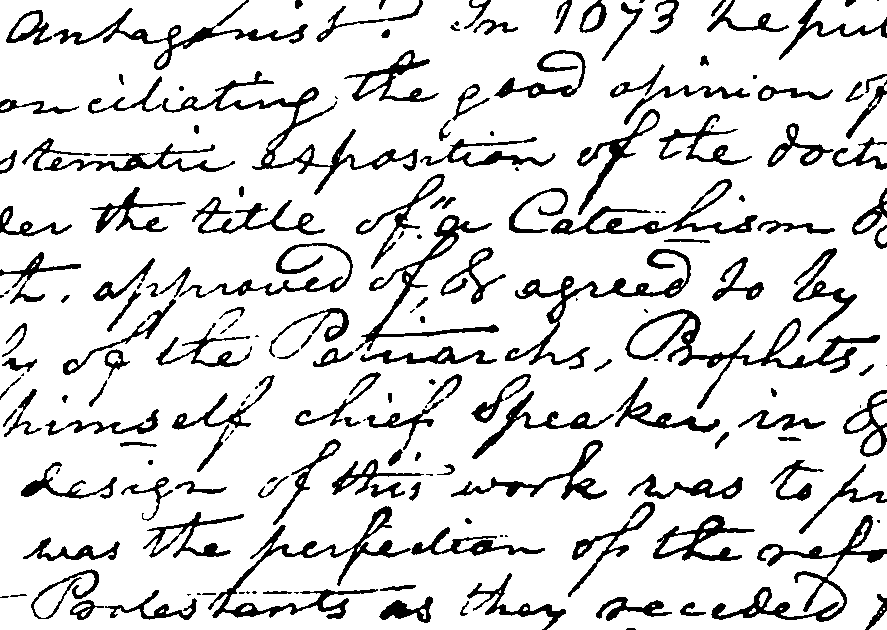 Antagonist". In 1673 he pu
onciliating the good opinion of
stematic exposition of the doctr
der the title of "a Catechism &
th. approved of, & agreed to by
ly of the Patriarchs, Prophets,
himself chief Speaker, in &
design of this work was to pr
was the perfection of the refo
Protestants as they receded